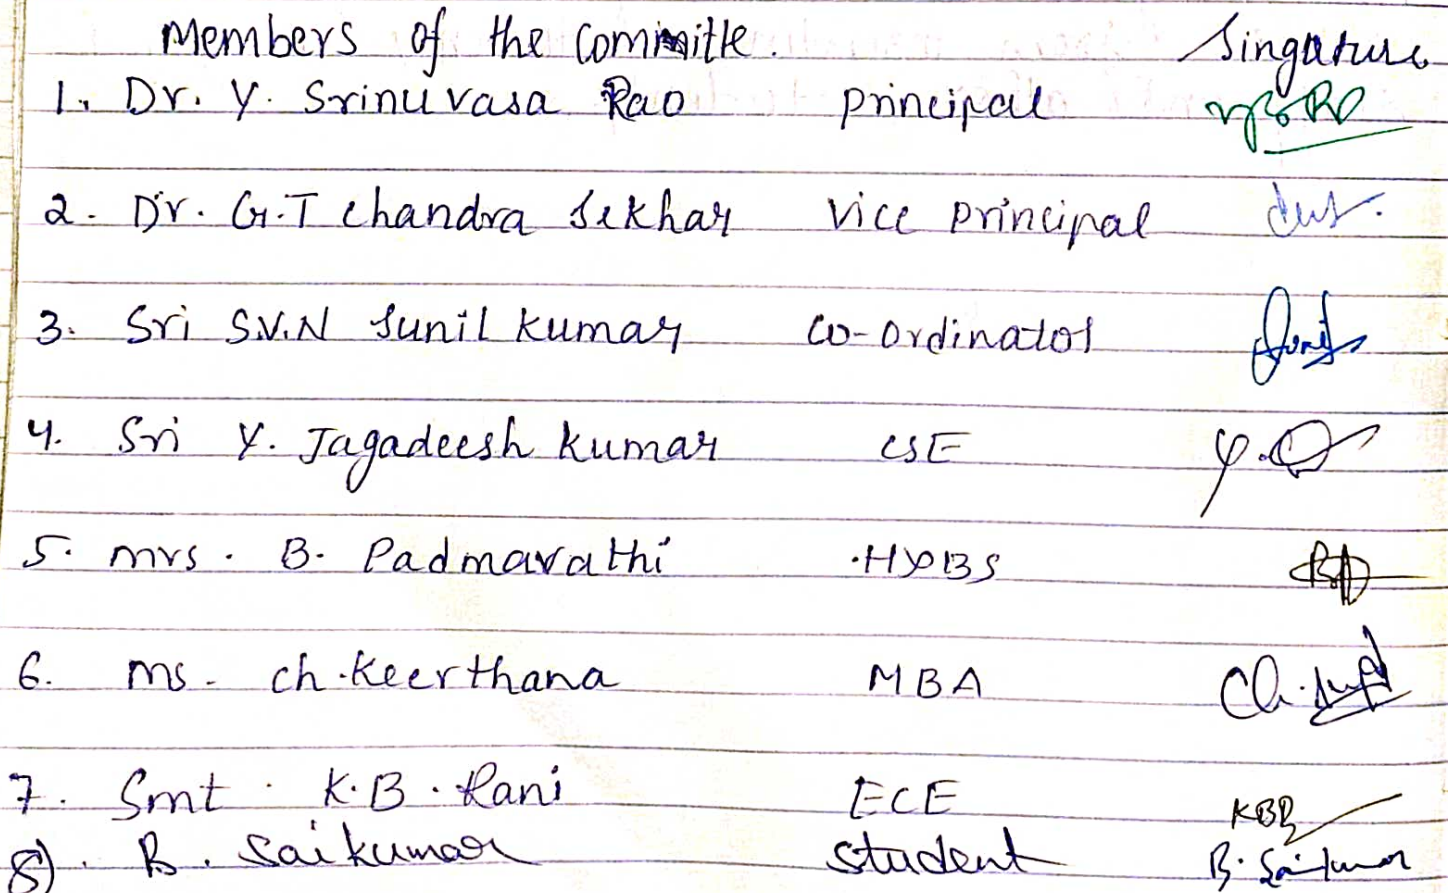 Members of the Committe. Singature
1. Dr. Y. Srinuvasa Rao Principal
2. Dr. G.T Chandra Sekhar Vice Principal
3. Sri S.V.N Sunil Kumar Co-ordinator
4. Sri Y. Jagadeesh Kumar CSE
5. Mrs. B. Padmavathi
6. Ms. Ch. Keerthana MBA
7. Smt. K.B. Rani ECE KBR
8). B. Saikumar Student B. Saikumar